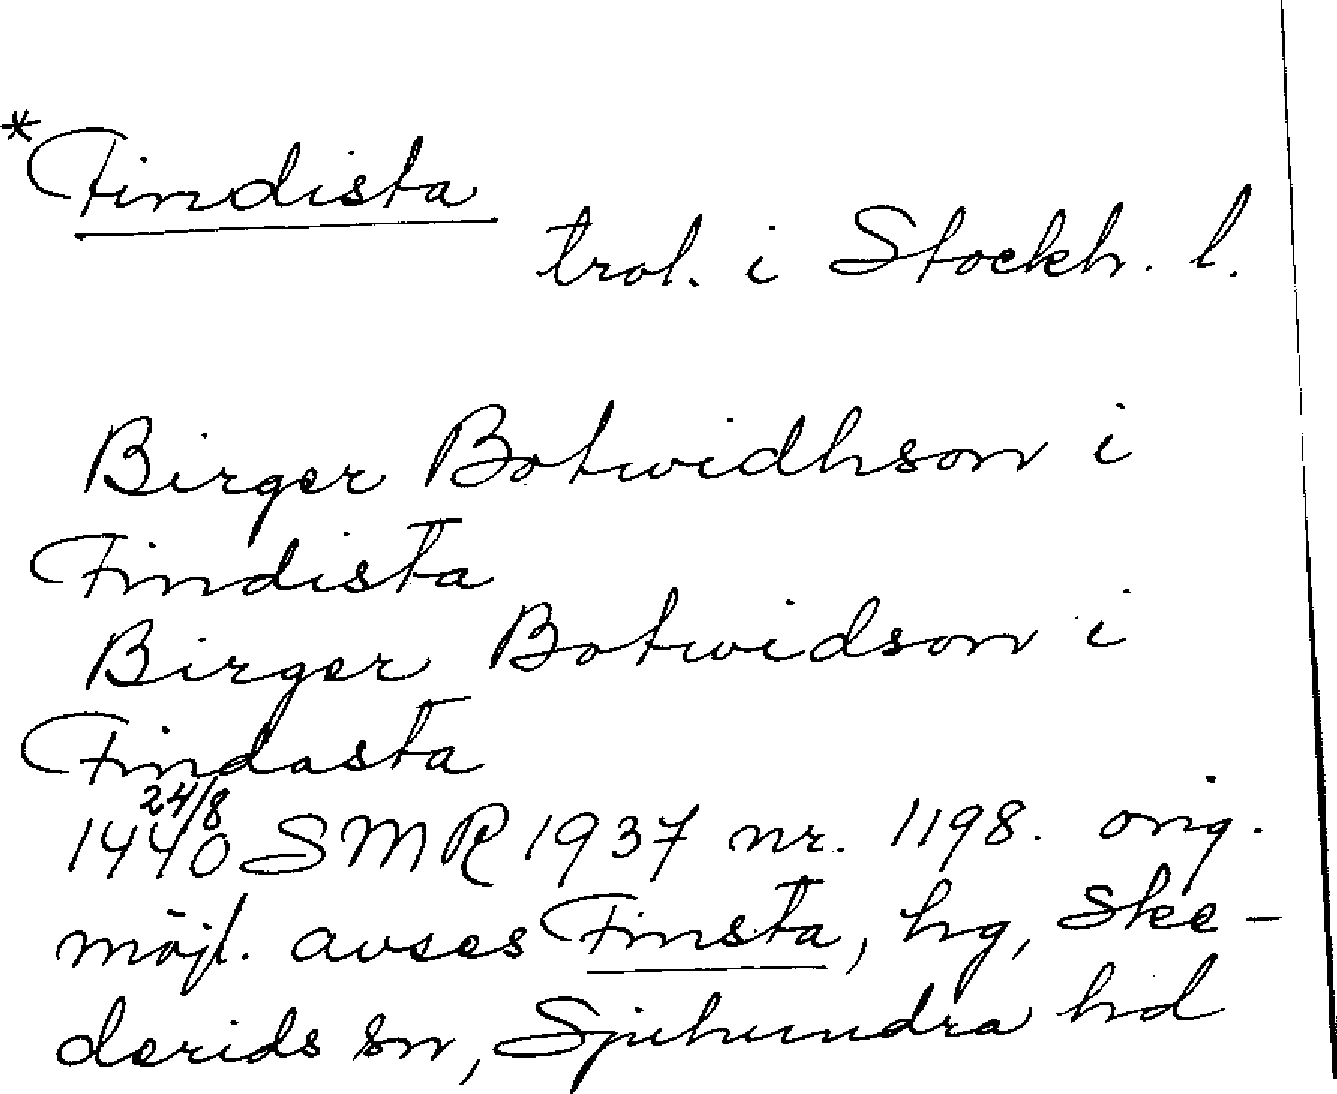 *Findista
trol. i Stockh. l.
Birger Botwidhson i
Findista
Birger Botwidson i
Findasta
1440 24/8 SMR 1937 nr. 1198. orig.
möjl. avses Finsta, hg, Ske-
derids sn, Sjuhundra hd